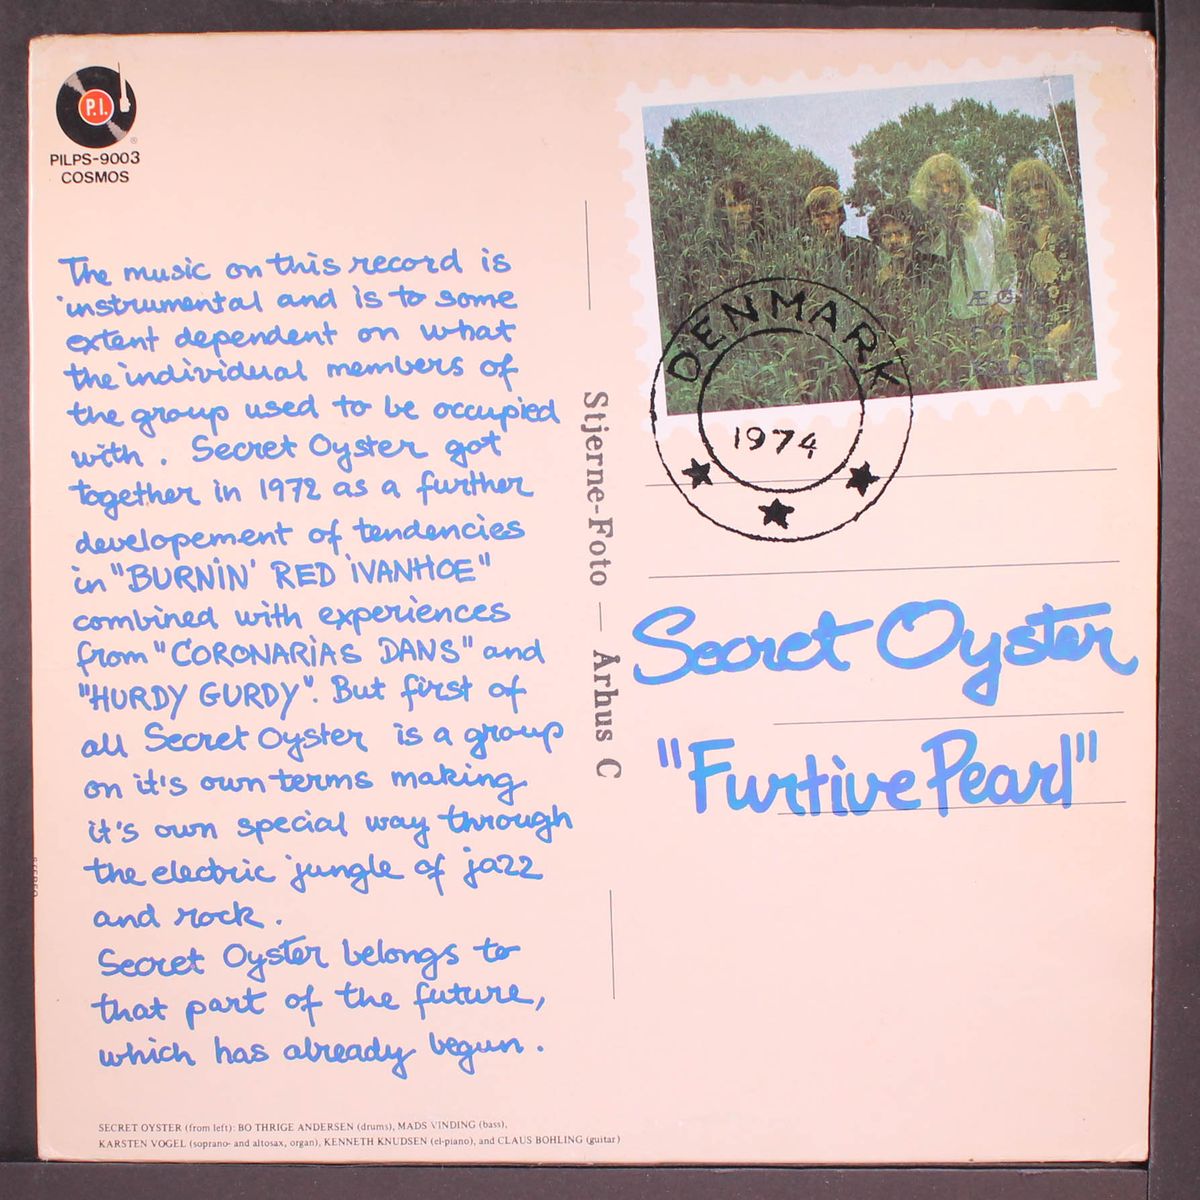 P.I.
®
PILPS-9003
COSMOS
The music on this record is
instrumental and is to some
extent dependent on what
the individual members of
the group used to be occupied
with. Secret Oyster got
together in 1972 as a further
developement of tendencies
in "BURNIN' RED IVANHOE"
combined with experiences
from "CORONARIAS DANS" and
"HURDY GURDY". But first of
all Secret Oyster is a group
on it's own terms making
it's own special way through
the electric jungle of jazz
and rock.
Secret Oyster belongs to
that part of the future,
which has already begun.
SECRET OYSTER (from left): BO THRIGE ANDERSEN (drums), MADS VINDING (bass),
KARSTEN VOGEL (soprano- and altosax, organ), KENNETH KNUDSEN (el-piano), and CLAUS BOHLING (guitar)
Stjerne-Foto — Århus C
DENMARK
1974
Secret Oyster
"Furtive Pearl"